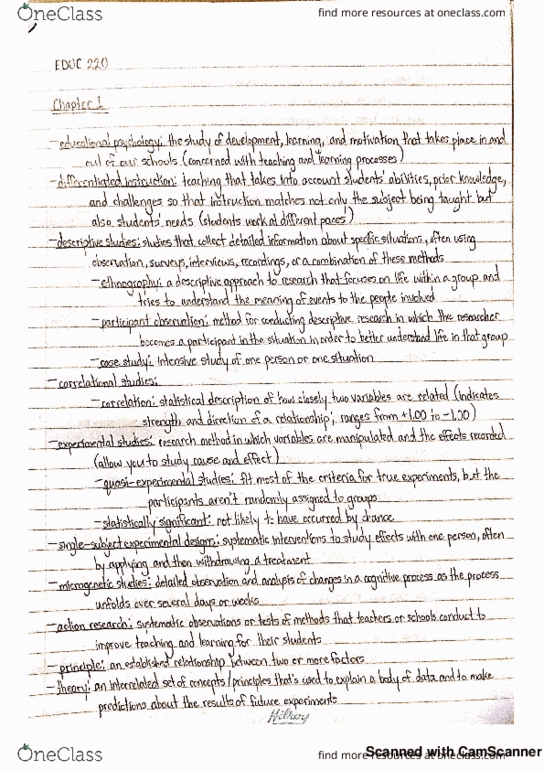 OneClass
find more resources at oneclass.com
EDUC 220
Chapter 1
- educational psychology: the study of development, learning, and motivation that takes place in and
out of our schools (concerned with teaching and learning processes)
- differentiated instruction: teaching that takes into account students' abilities, prior knowledge,
and challenges so that instruction matches not only the subject being taught but
also students' needs (students work at different paces)
- descriptive studies: studies that collect detailed information about specific situations, often using
observation, surveys, interviews, recordings, or a combination of these methods
- ethnography: a descriptive approach to research that focuses on life within a group and
tries to understand the meaning of events to the people involved
- participant observation: method for conducting descriptive research in which the researcher
becomes a participant in the situation in order to better understand life in that group
- case study: intensive study of one person or one situation
- correlational studies:
- correlation: statistical description of how closely two variables are related (indicates
strength and direction of a relationship; ranges from +1.00 to -1.00)
- experimental studies: research method in which variables are manipulated and the effects recorded
(allow you to study cause and effect)
- quasi-experimental studies: fit most of the criteria for true experiments, but the
participants aren't randomly assigned to groups
- statistically significant: not likely to have occurred by chance
- single-subject experimental designs: systematic interventions to study effects with one person, often
by applying and then withdrawing a treatment
- microgenetic studies: detailed observation and analysis of changes in a cognitive process as the process
unfolds over several days or weeks
- action research: systematic observations or tests of methods that teachers or schools conduct to
improve teaching and learning for their students
- principle: an established relationship between two or more factors
- theory: an interrelated set of concepts/principles that's used to explain a body of data and to make
predictions about the results of future experiments
Hilroy
OneClass
find more resources at oneclass.com
Scanned with CamScanner